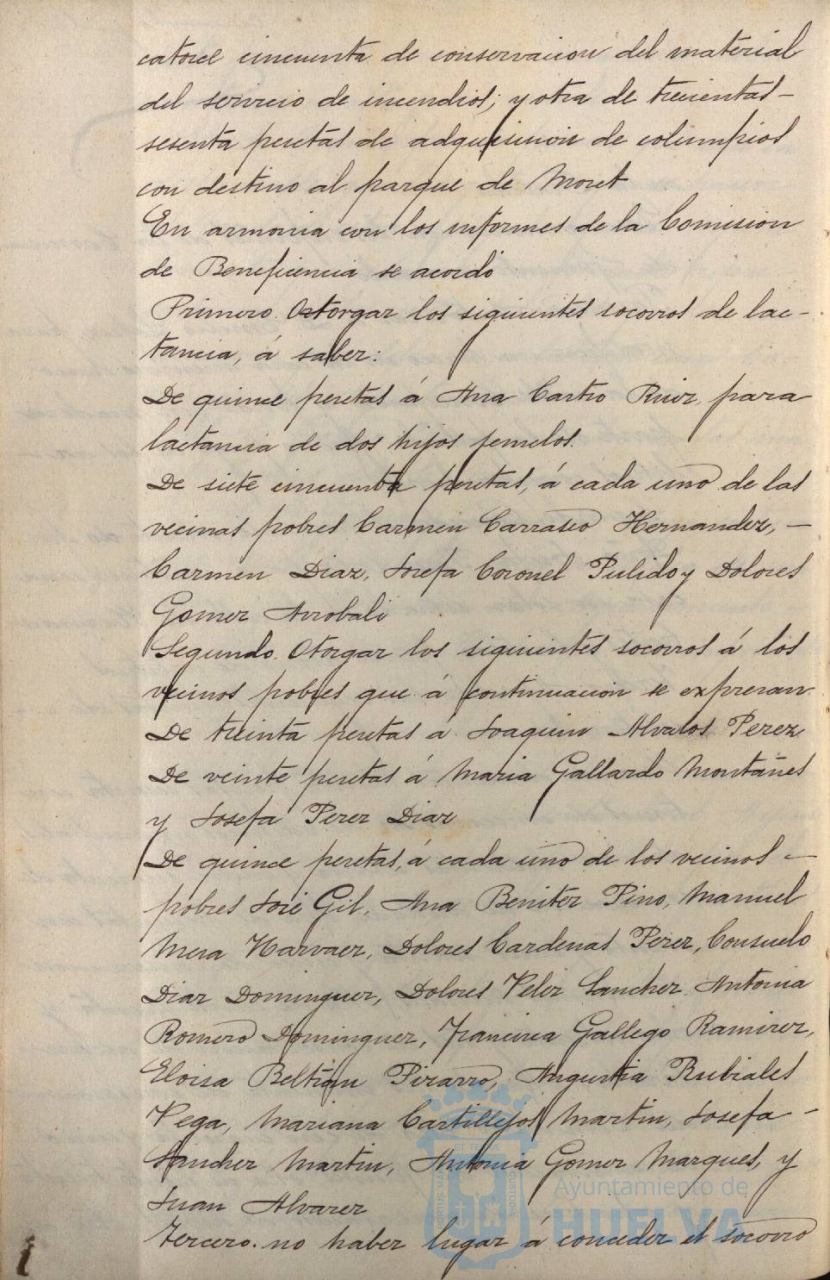 catorce cincuenta de conservacion del material
del servicio de incendios; y otra de trescientas-
sesenta pesetas de adquisicion de columpios
con destino al parque de Moret
En armonia con los informes de la Comision
de Beneficencia se acordó
Primero. Otorgar los siguientes socorros de lac-
tancia, á saber:
De quince pesetas á Ana Castro Ruiz, para
lactancia de dos hijos jemelos.
De siete cincuenta pesetas, á cada uno de las
vecinas pobres Carmen Carrasco Hernandez, -
Carmen Diaz, Josefa Coronel Pulido y Dolores
Gomez Arrobali
Segundo. Otorgar los siguientes socorros á los
vecinos pobres que á continuacion se expresan.
De treinta pesetas á Joaquin Alvalos Perez
De veinte pesetas á Maria Gallardo Montañes
y Josefa Perez Diaz
De quince pesetas, á cada uno de los vecinos -
pobres José Gil, Ana Benitez Pino, Manuel
Mesa Narvaez, Dolores Cardenas Perez, Consuelo
Diaz Dominguez, Dolores Velez Sanchez, Antonia
Romero Dominguez, Francisca Gallego Ramirez,
Eloisa Beltran Pizarro, Angustia Rubiales
Vega, Mariana Castillejos Martin, Josefa -
Sanchez Martin, Antonia Gomez Marques, y
Juan Alvarez
Tercero. no haber lugar á conceder el socorro
Ayuntamiento de
HUELVA